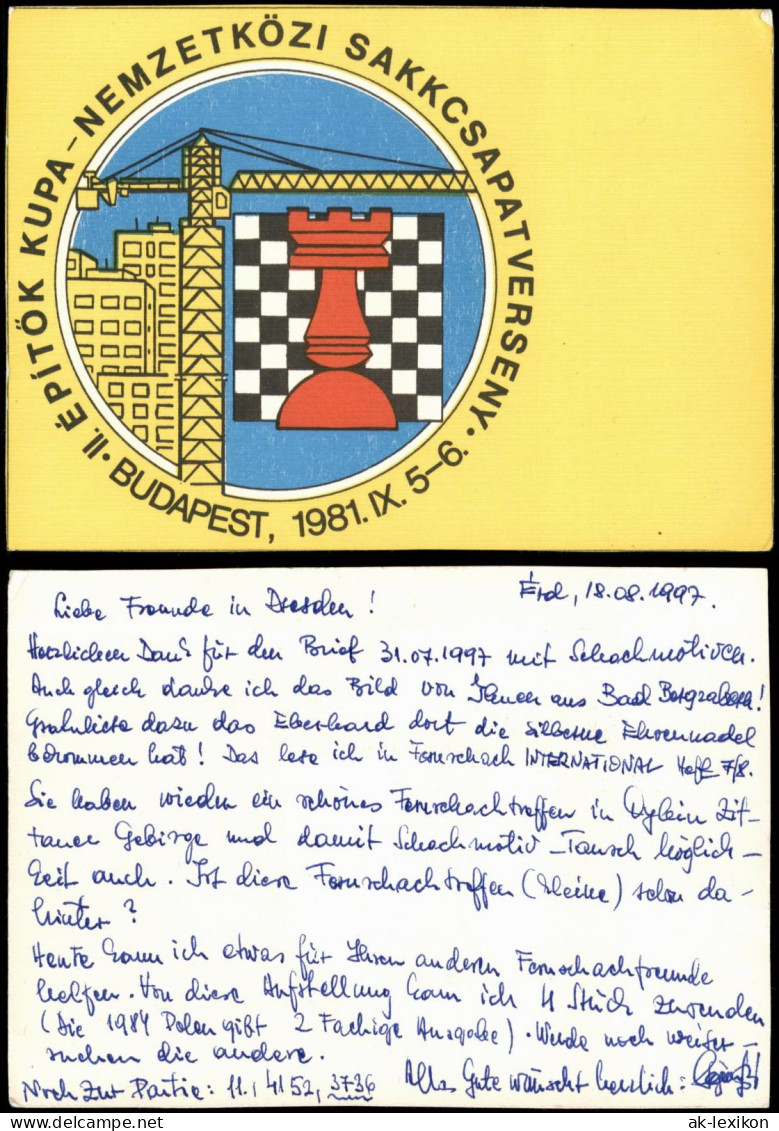 II. ÉPÍTŐK KUPA - NEMZETKÖZI SAKKCSAPATVERSENY •
BUDAPEST, 1981. IX. 5-6.
Érd, 18.08.1997.
Liebe Freunde in Dresden!
Herzlichen Dank für den Brief 31.07.1997 mit Schachmotiven.
Auch gleich danke ich das Bild von Ihnen aus Bad Bergzabern!
dazu das Eberhard dort die silberne Ehrennadel
bekommen hat! Das lese ich in Fernschach INTERNATIONAL Heft 7/8.
Sie haben wieder ein schönes Fernschachtreffen in Oybin Zit-
tauer Gebirge und damit Schachmotiv-Tausch möglich-
keit auch. Ist diese Fernschachtreffen (kleine) schon da-
hinter?
Heute kann ich etwas für Ihren anderen Fernschachfreunde
helfen. Von diese Aufstellung kann ich 4 Stück zusenden
(Die 1984 Polen gibt 2 Fachige Ausgabe). Werde noch weiter-
suchen die andere.
Noch zur Partie: 11., 4152, 3736
Alles Gute wünscht herzlich:
ak-lexikon
www.delcampe.net